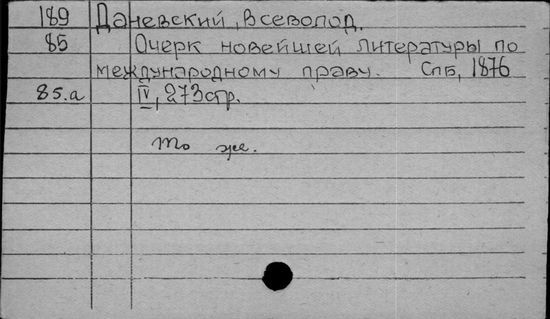 189 Даневский, Всеволод.
85 Очерк новейшей литературы по
международному праву. Спб, 1876
85.а IV, 273 стр.
То же.